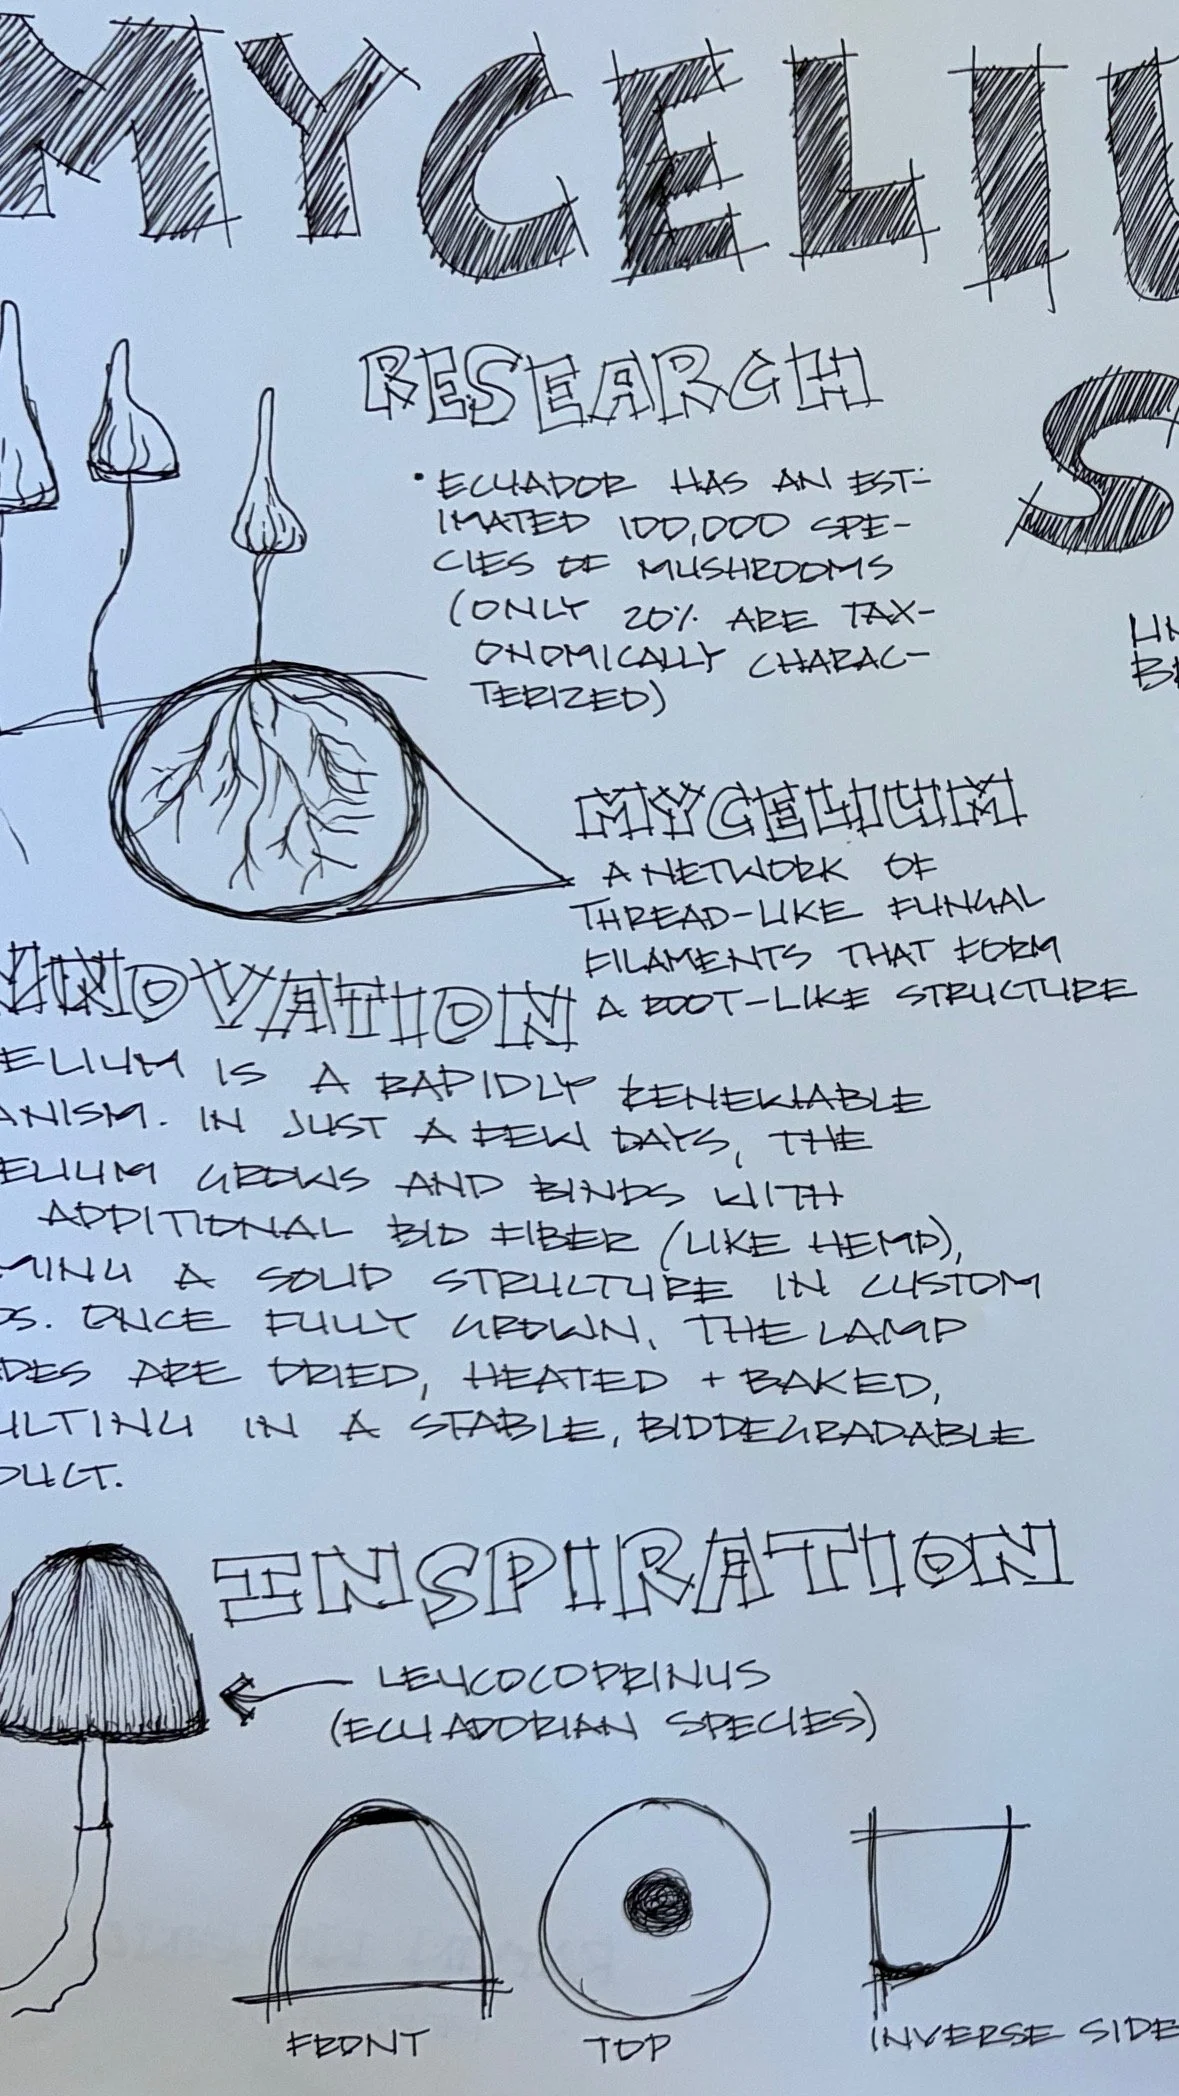 MYCELIU
RESEARCH
• ECUADOR HAS AN EST-
IMATED 100,000 SPE-
CIES OF MUSHROOMS
(ONLY 20% ARE TAX-
ONOMICALLY CHARAC-
TERIZED)
S
MYCELIUM
A NETWORK OF
THREAD-LIKE FUNGAL
FILAMENTS THAT FORM
A ROOT-LIKE STRUCTURE
INNOVATION
ELIUM IS A RAPIDLY RENEWABLE
ANISM. IN JUST A FEW DAYS, THE
ELIUM GROWS AND BINDS WITH
ADDITIONAL BIO FIBER (LIKE HEMP),
MING A SOLID STRUCTURE IN CUSTOM
DS. ONCE FULLY GROWN, THE LAMP
DES ARE DRIED, HEATED + BAKED,
ULTING IN A STABLE, BIODEGRADABLE
DUCT.
INSPIRATION
LEUCOCOPRINUS
(ECUADORIAN SPECIES)
FRONT
TOP
INVERSE SIDE